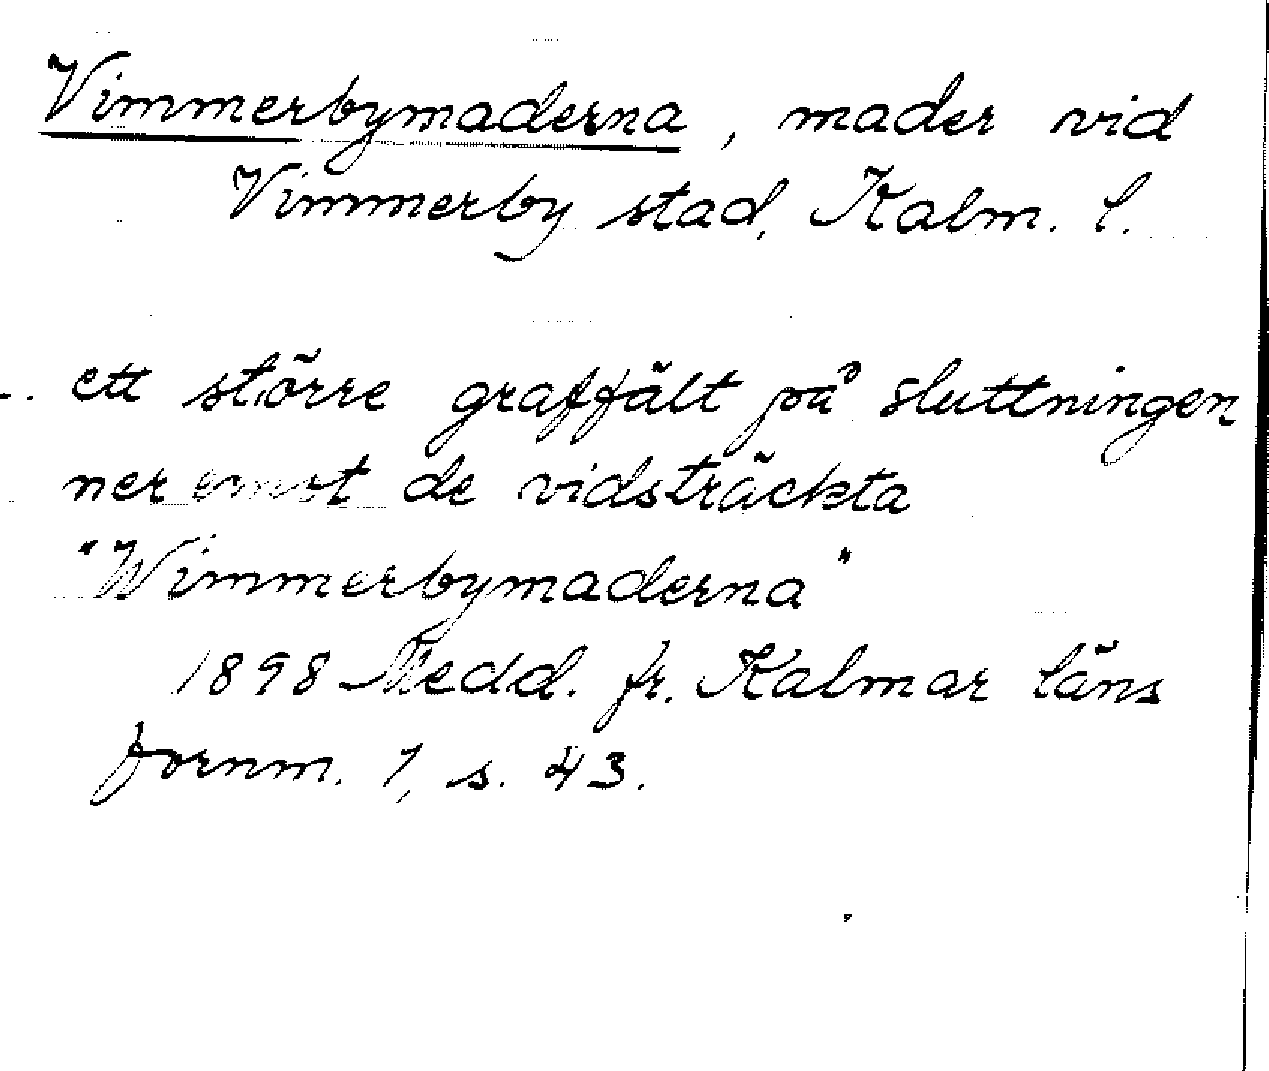 Vimmerbymaderna, mader vid
Vimmerby stad, Kalm. l.
-. ett större graffält på sluttningen
ner emot de vidsträckta
"Wimmerbymaderna"
1898 Medd. fr. Kalmar läns
fornm. 1, s. 43.